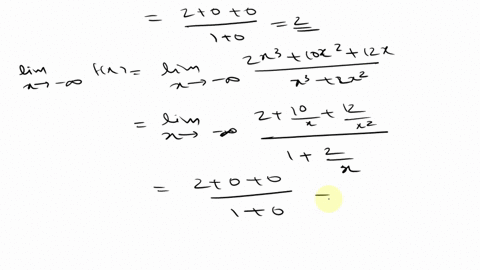 = (2+0+0)/(1+0) = 2
lim x→-∞ f(x) = lim x→-∞ (2x³+10x²+12x)/(x³+2x²)
= lim x→-∞ (2+10/x+12/x²)/(1+2/x)
= (2+0+0)/(1+0) =